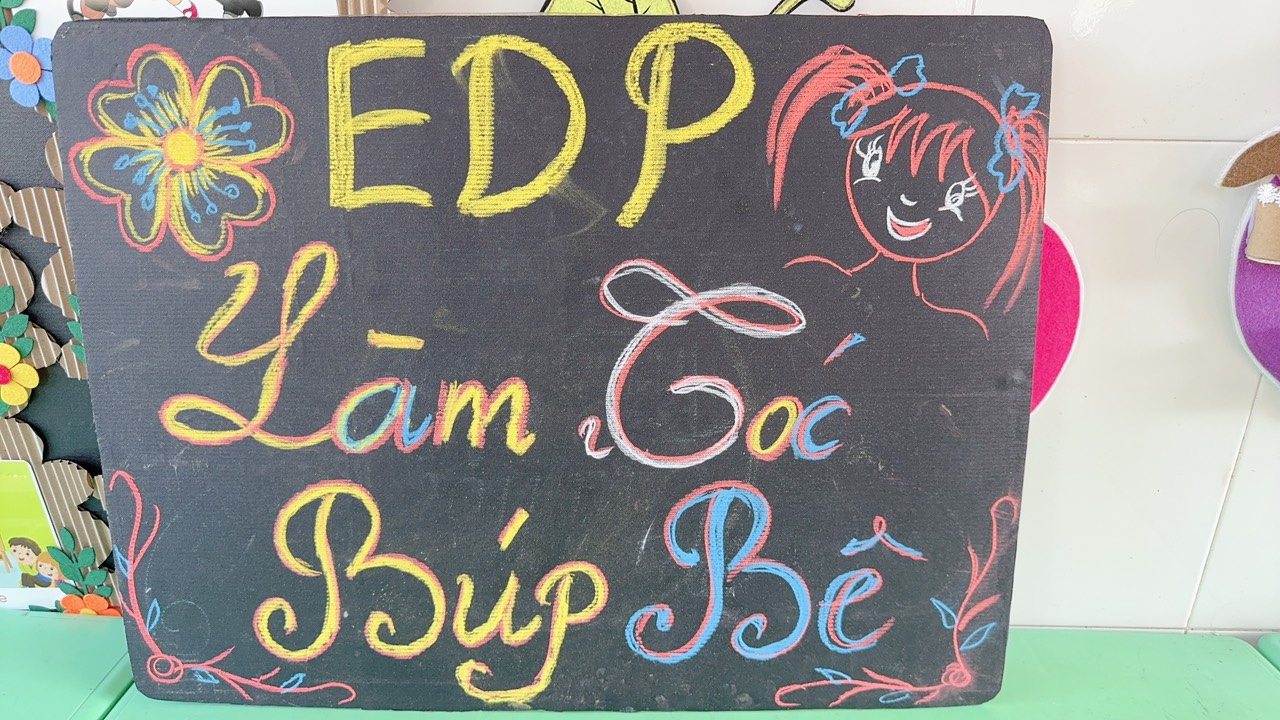 EDP
Làm Tóc
Búp Bê